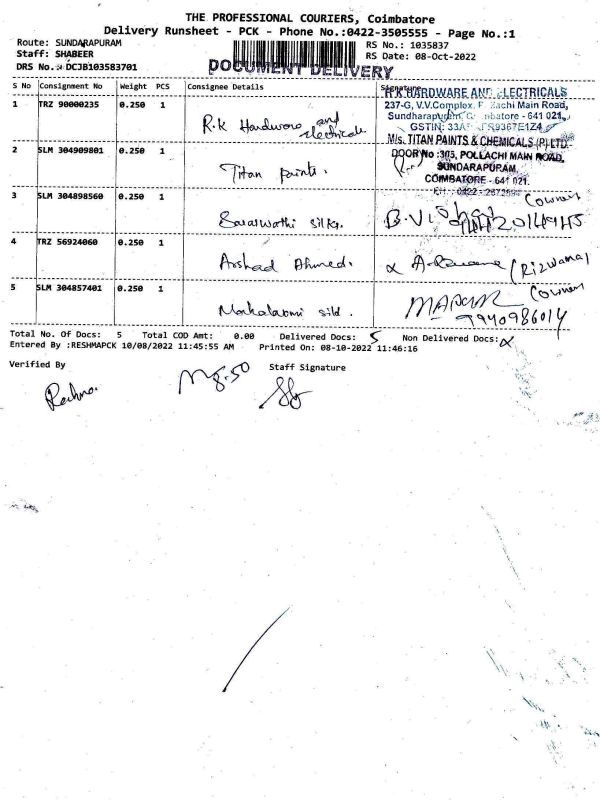 THE PROFESSIONAL COURIERS, Coimbatore
Delivery Runsheet - PCK - Phone No.:0422-3505555 - Page No.:1
Route: SUNDARAPURAM
RS No.: 1035837
Staff: SHABEER
RS Date: 08-Oct-2022
DRS No.: DCJB103583701
DOCUMENT DELIVERY
S No Consignment No Weight PCS Consignee Details Signature
1 TRZ 90000235 0.250 1 R.K Hardware and Electricals
R.K HARDWARE AND ELECTRICALS
237-G, V.V.Complex, Pollachi Main Road,
Sundarapuram, Coimbatore - 641 021.
GSTIN: 33A
2 SLM 304909801 0.250 1 Titan paints.
M/s. TITAN PAINTS & CHEMICALS (P) LTD.
DOOR No : 305, POLLACHI MAIN ROAD,
SUNDARAPURAM,
COIMBATORE - 641 021.
3 SLM 304898560 0.250 1 Saraswathi silks.
(owner)
4 TRZ 56924060 0.250 1 Arshad Ahmed.
(Rizwana)
5 SLM 304857401 0.250 1 Mahalaxmi
(owner)
9940986014
Total No. Of Docs: 5 Total COD Amt: 0.00 Delivered Docs: 5 Non Delivered Docs:
Entered By :RESHMAPCK 10/08/2022 11:45:55 AM Printed On: 08-10-2022 11:46:16
Verified By
Staff Signature
8.50